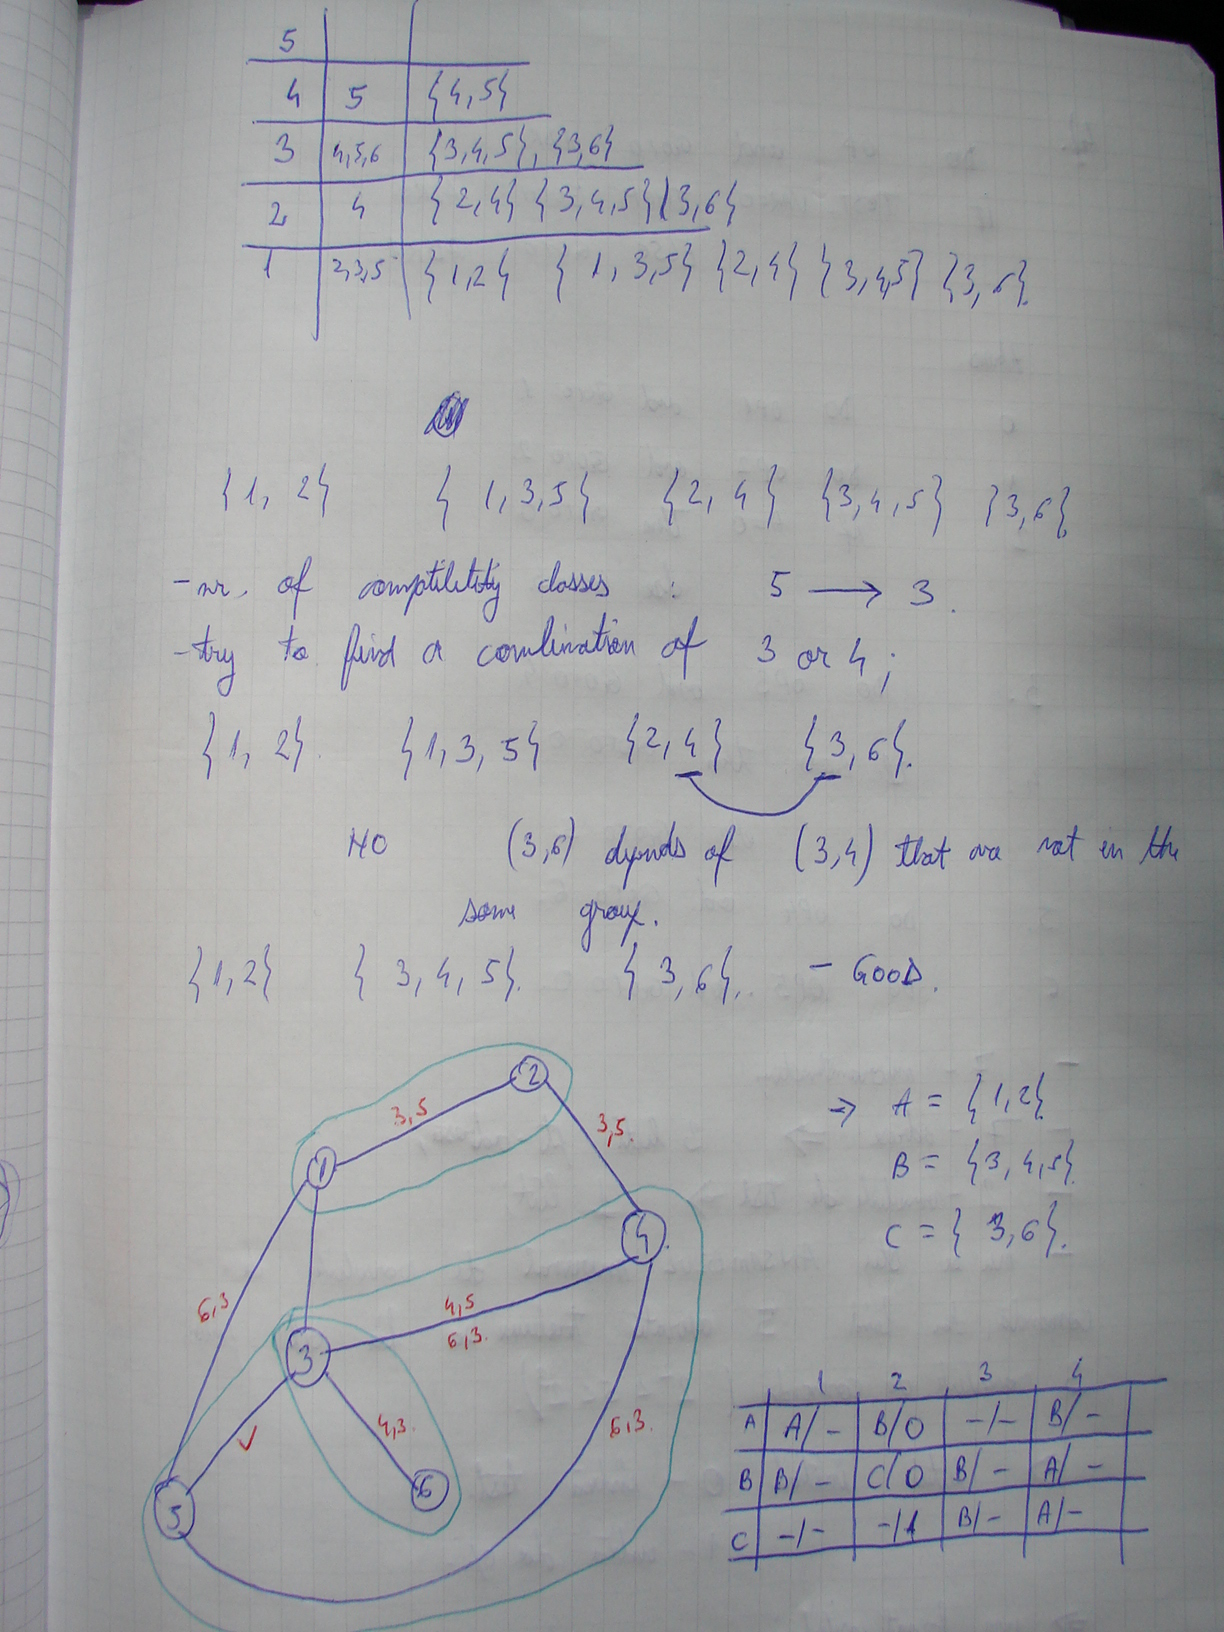 5
4 5 {4,5}
3 4,5,6 {3,4,5}, {3,6}
2 4 {2,4} {3,4,5} {3,6}
1 2,3,5 {1,2} {1,3,5} {2,4} {3,4,5} {3,6}
{1, 2} {1,3,5} {2,4} {3,4,5} {3,6}
- nr. of comptilitity classes : 5 → 3.
- try to find a combination of 3 or 4;
{1, 2}. {1,3,5} {2,4} {3,6}.
NO (3,6) depends of (3,4) that are not in the
same group.
{1,2} {3,4,5}. {3,6}. - GOOD.
2
3,5
3,5.
1
4
6,3
4,5
6,3.
3
4,3.
6,3.
6
5
→ A = {1,2}
B = {3,4,5}
C = {3,6}.
1 2 3 4
A A/- B/0 -/- B/-
B B/- C/0 B/- A/-
C -/- -/1 B/- A/-